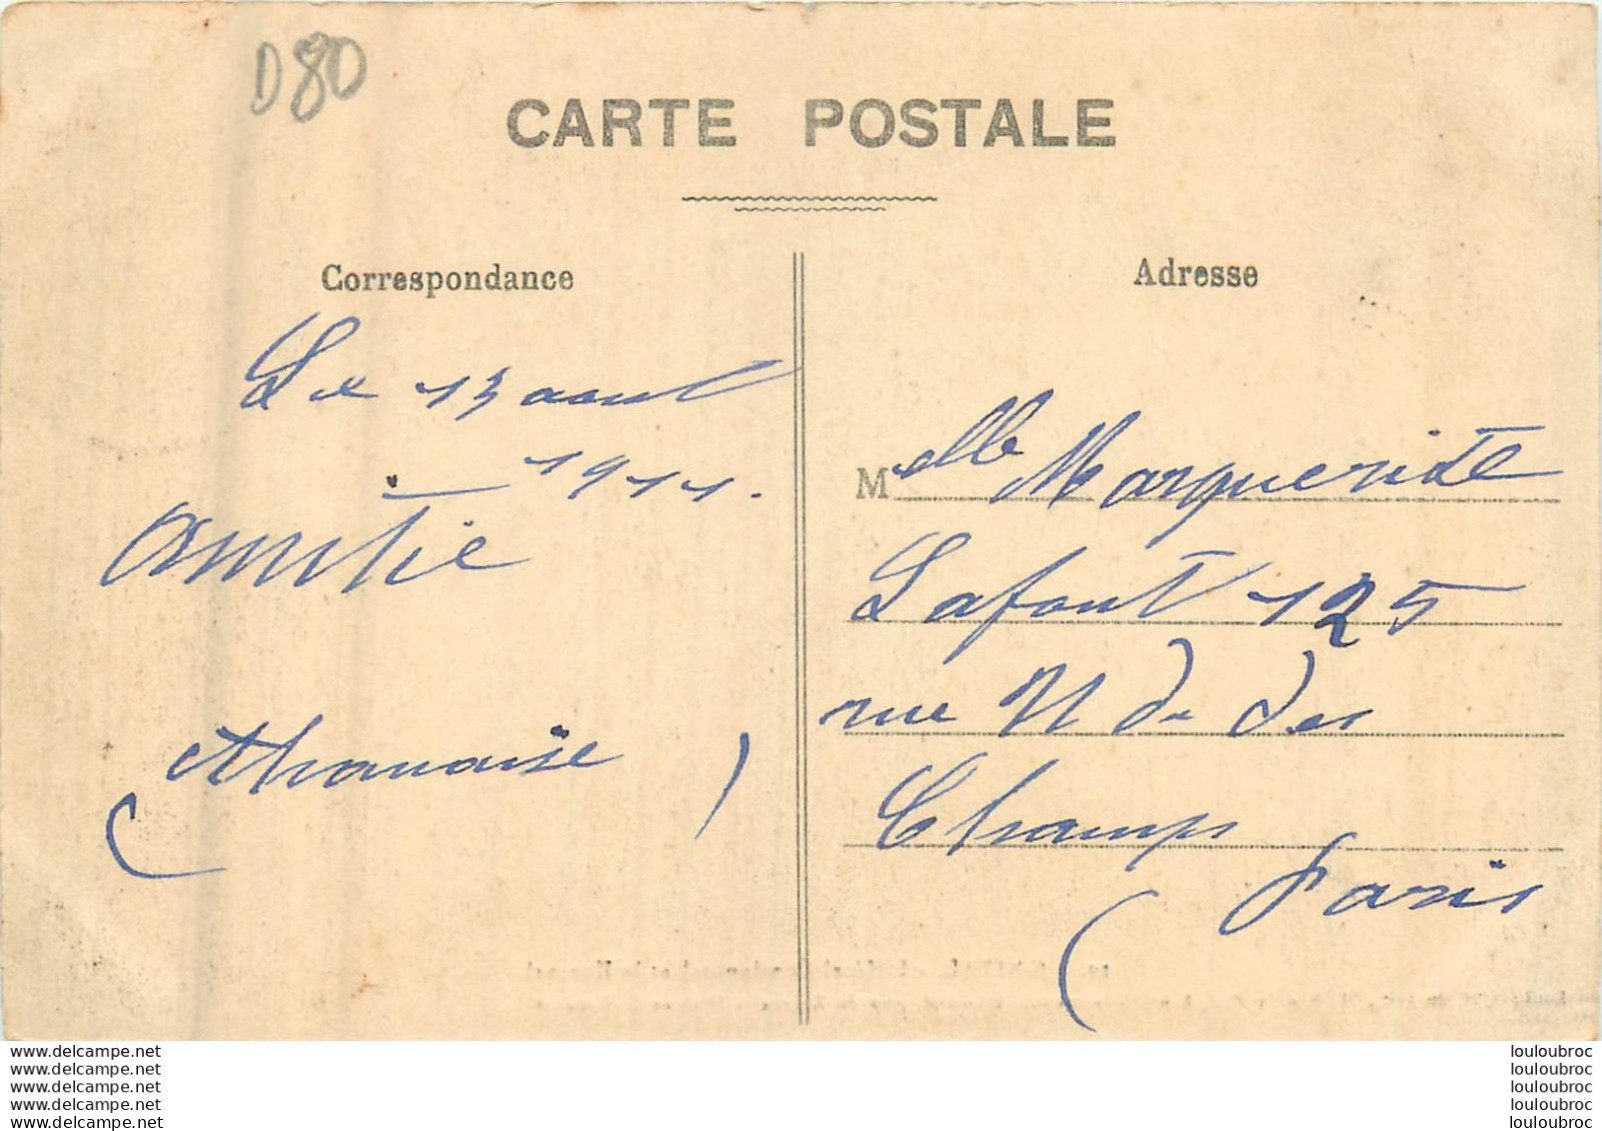 D80
CARTE POSTALE
Correspondance
Le 13 aout
1911.
Amitié
Athanaise
Adresse
Melle Marguerite
Lafont 125
rue N d des
Champs
Paris
www.delcampe.net
www.delcampe.net
www.delcampe.net
www.delcampe.net
www.delcampe.net
louloubroc
louloubroc
louloubroc
louloubroc
louloubroc